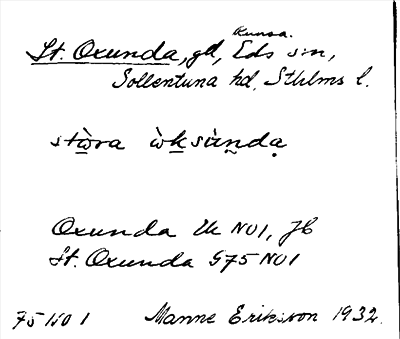 Runsa.
St. Oxunda, gd, Eds sn,
Sollentuna hd, Sthlms l.
stẁra ẁksùn̥dạ
Oxunda Uk NO1, JB
St. Oxunda G75 NO1
75 1i0 1 Manne Eriksson 1932.